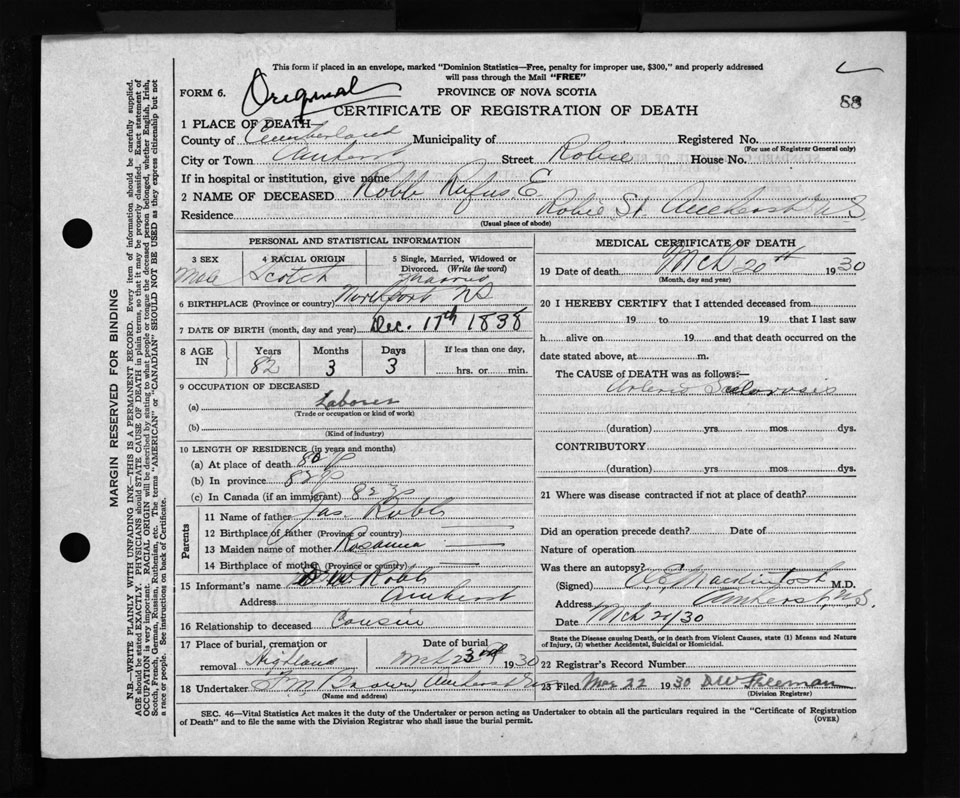 This form if placed in an envelope, marked "Dominion Statistics—Free, penalty for improper use, $300," and properly addressed
will pass through the Mail "FREE"
FORM 6. Original PROVINCE OF NOVA SCOTIA 88
CERTIFICATE OF REGISTRATION OF DEATH
1 PLACE OF DEATH
County of Cumberland Municipality of Registered No.
(For use of Registrar General only)
City or Town Amherst Street Robie House No.
If in hospital or institution, give name
2 NAME OF DECEASED Robb Rufus E.
Residence Robie St. Amherst N.S.
(Usual place of abode)
PERSONAL AND STATISTICAL INFORMATION
3 SEX 4 RACIAL ORIGIN 5 Single, Married, Widowed or
Divorced. (Write the word)
Male Scotch Married
6 BIRTHPLACE (Province or country) Northport NS
7 DATE OF BIRTH (month, day and year) Dec. 17th 1838
8 AGE IN Years Months Days If less than one day,
82 3 3 hrs. or min.
9 OCCUPATION OF DECEASED
(a) Laborer
(Trade or occupation or kind of work)
(b)
(Kind of industry)
10 LENGTH OF RESIDENCE (in years and months)
(a) At place of death 80 y
(b) In province 82 y
(c) In Canada (if an immigrant) 82 y
Parents
11 Name of father Jas. Robb
12 Birthplace of father (Province or country)
13 Maiden name of mother Rosanna
14 Birthplace of mother (Province or country)
15 Informant's name W Robb
Address Amherst
16 Relationship to deceased Cousin
17 Place of burial, cremation or Date of burial
removal Highland Mch 23rd 1930
18 Undertaker Brown, Amherst
(Name and address)
MEDICAL CERTIFICATE OF DEATH
19 Date of death Mch 20th 1930
(Month, day and year)
20 I HEREBY CERTIFY that I attended deceased from
19 to 19 that I last saw
h alive on 19 and that death occurred on the
date stated above, at m.
The CAUSE of DEATH was as follows:—
Arterio Sclerosis
(duration) yrs mos dys.
CONTRIBUTORY
(duration) yrs. mos. dys.
21 Where was disease contracted if not at place of death?
Did an operation precede death? Date of
Nature of operation
Was there an autopsy?
(Signed) Mackintosh M.D.
Address Amherst, N.S.
Date Mch 20/30
State the Disease causing Death, or in death from Violent Causes, state (1) Means and Nature
of Injury, (2) whether Accidental, Suicidal or Homicidal.
22 Registrar's Record Number
23 Filed Mar 22 1930 DW Freeman
(Division Registrar)
SEC. 46—Vital Statistics Act makes it the duty of the Undertaker or person acting as Undertaker to obtain all the particulars required in the "Certificate of Registration
of Death" and to file the same with the Division Registrar who shall issue the burial permit. (OVER)
MARGIN RESERVED FOR BINDING
N.B.—WRITE PLAINLY WITH UNFADING INK—THIS IS A PERMANENT RECORD. Every item of information should be carefully supplied.
AGE should be stated EXACTLY. PHYSICIANS should STATE CAUSE OF DEATH in plain terms, so that it may be properly classified. Exact statement of
OCCUPATION is very important. RACIAL ORIGIN will be described by stating to what people or tongue the deceased person belonged, whether English, Irish,
Scotch, French, German, Russian, Ruthenian, etc. The terms "AMERICAN" or "CANADIAN" SHOULD NOT BE USED as they express citizenship but not
a race or people. See instructions on back of Certificate.